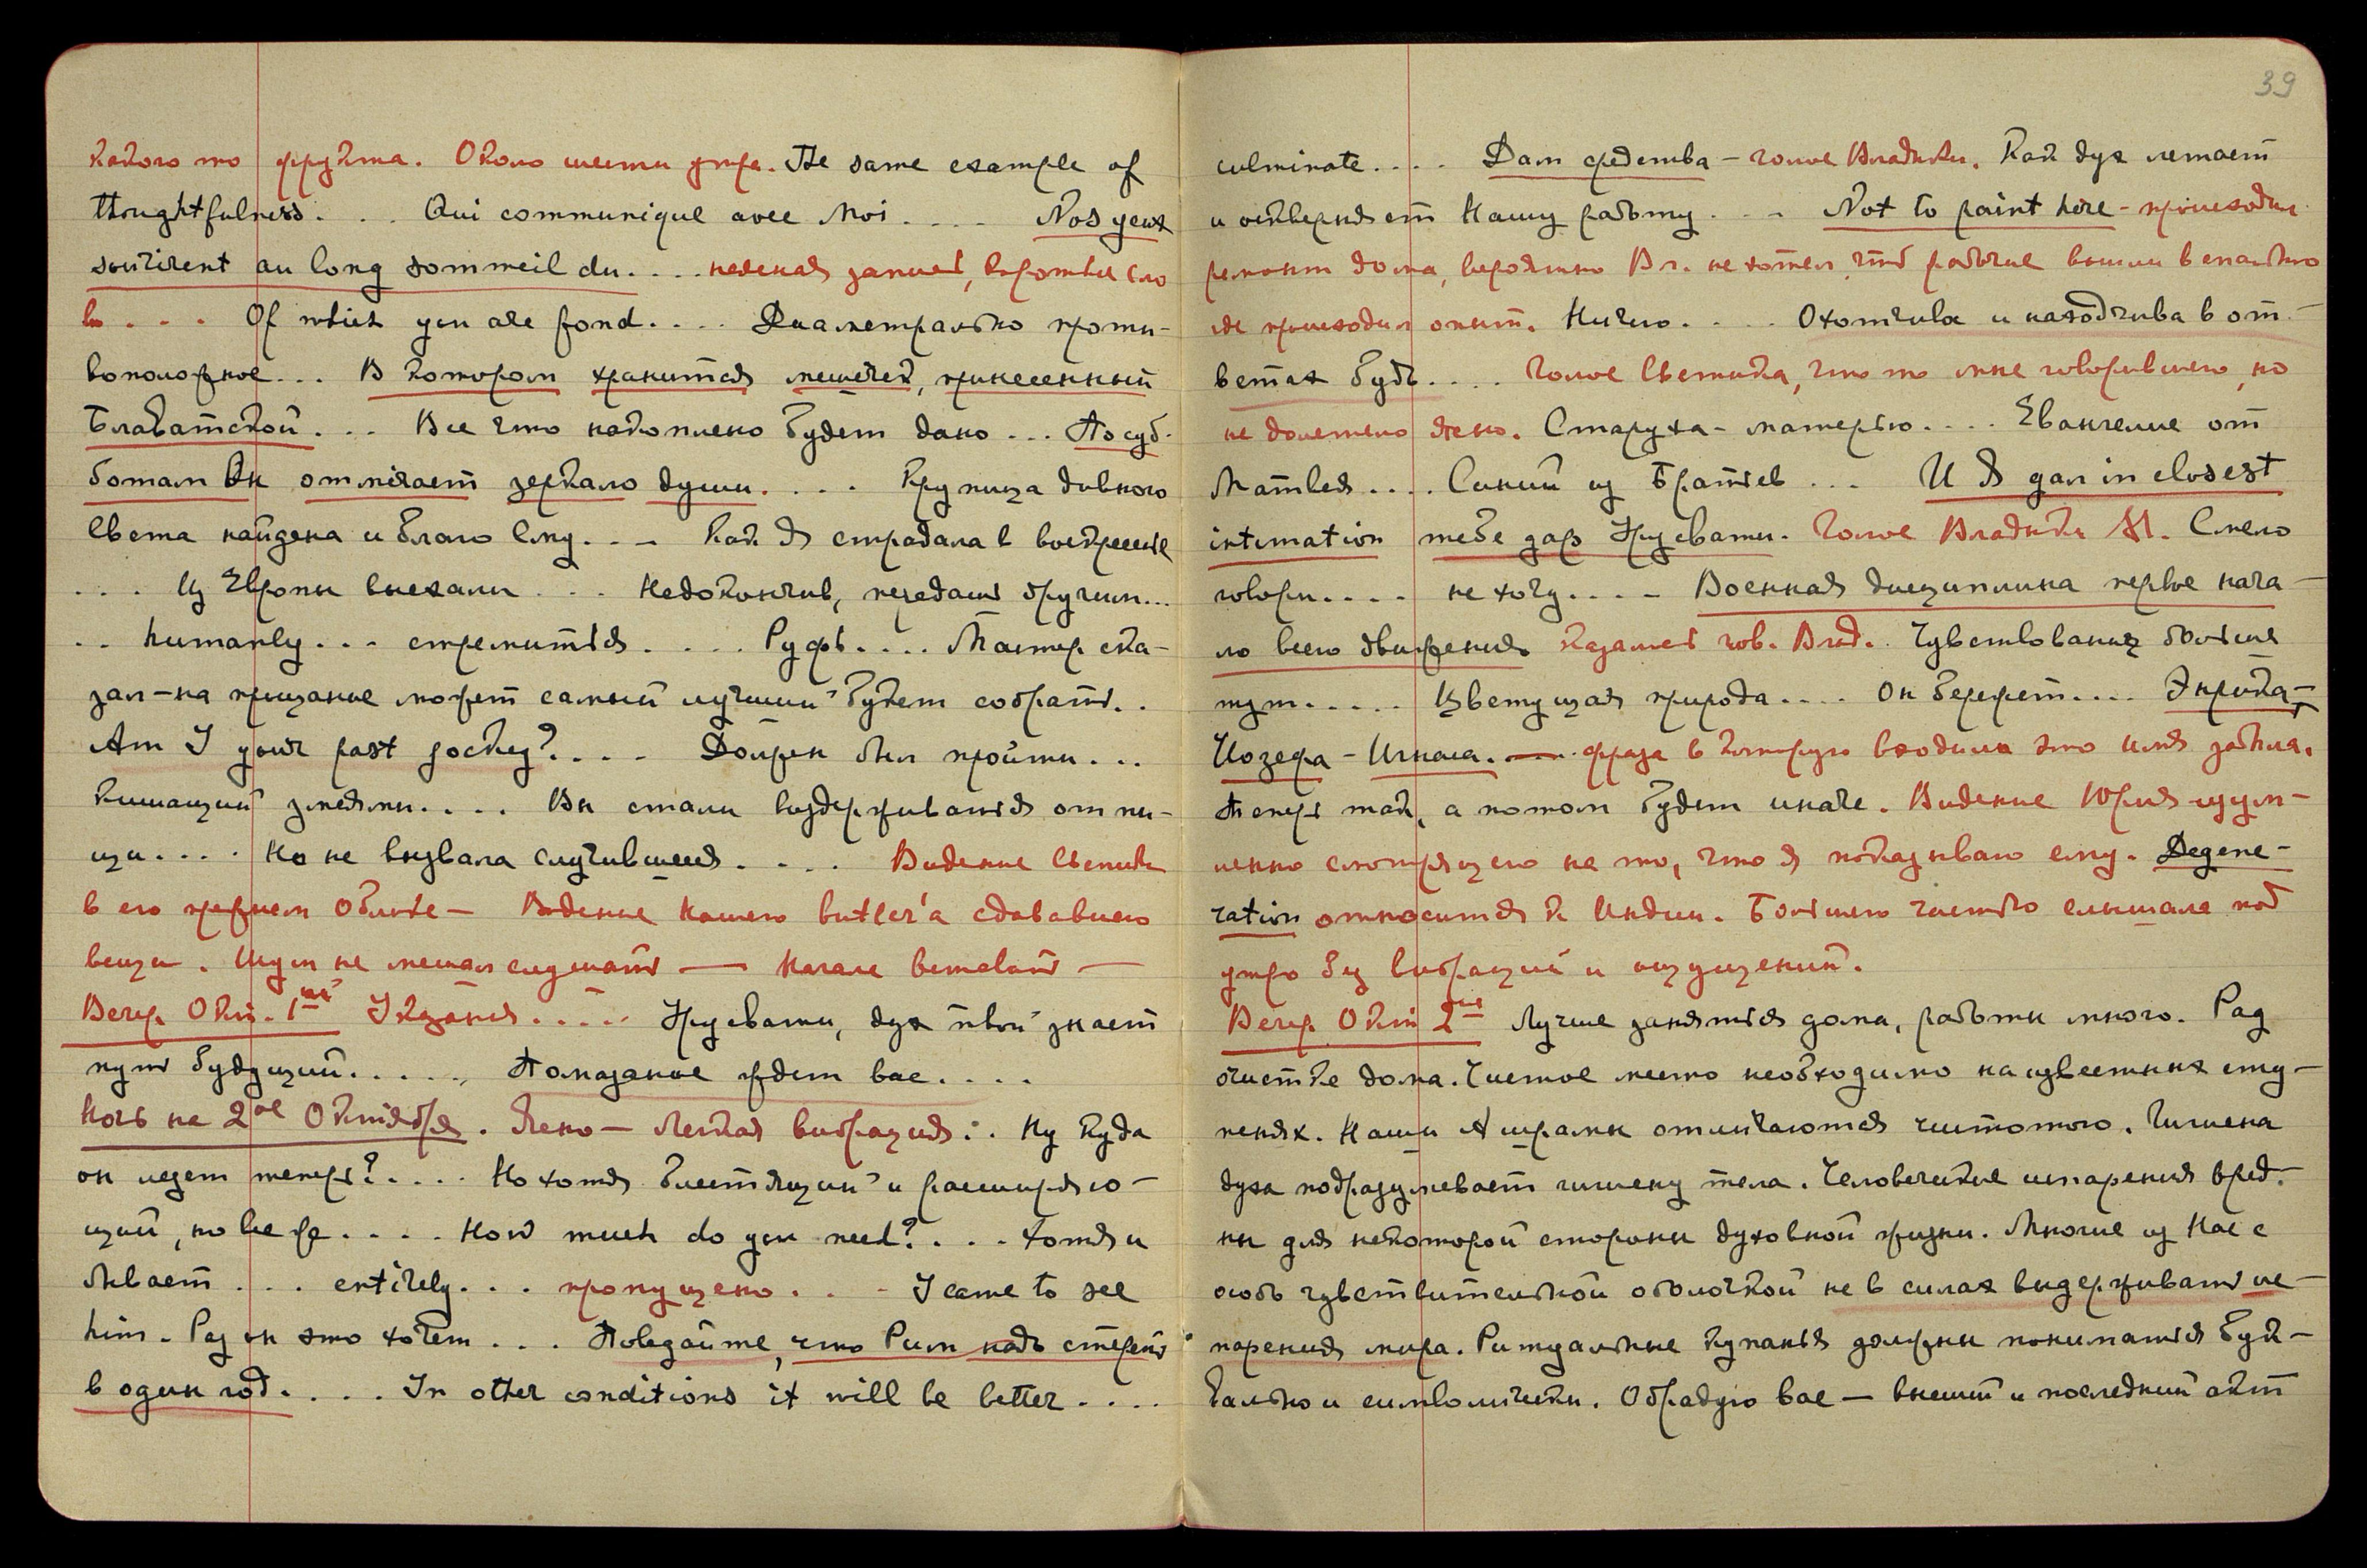 какого то фрукта. Около шести утра. The same example of
thoughtfulness. . . . Qui communique avec Moi . . . . Nos yeux
sourirent au long sommeil du. . . . неясная запись, короткие сло
во . . . Of which you are fond. . . . Диаметрально проти-
воположное... В котором хранится мешечек, принесенный
Блаватской. . . Все что накоплено будет дано ... По суб-
ботам Он отмечает зеркало души. . . . Крупица дивного
Света найдена и благо Ему. . . Как я страдала в воскресенье
. . . Из Европы выехали . . . Недокончив, передаешь другим...
. . humanly . . . стремиться . . . . Руфь . . . . Мастер ска-
зал-на прощание может самый лучший букет собрать. .
Am I your past jockey? . . . . Должен был пройти . . .
Кишащий змеями. . . . Вы стали воздерживаться от пи-
щи. . . . Но не вызвала случившееся . . . . Видение Светика
в его прежнем Облике — Видение нашего butler'а сдававшего
вещи. Шум не мешал слушать — начале вставать —
Вечер Окт. 1ый Указания . . . . . Урусвати, дух твой знает
путь будущий. . . . . Помазание ждет вас. . . .
Ночь на 2ое Октября. Ясно — Легкая вибрация. . Ну куда
он лезет теперь? . . . . Но хотя блестящий и расширяю-
щий, но все же . . . . How much do you need? . . . . Хотя и
бывает . . . entirely. . . пропущено . . . I came to see
him. Раз он это хочет . . . Поведайте, что Рим надо стереть
в один год. . . . In other conditions it will be better . . . .
39
culminate . . . . Дам средства - голос Владыки. Как дух летает
и оскверняет Нашу работу . . . Not to paint here - происходил
ремонт дома, вероятно Вл. не хотел, чтоб рабочие вошли в спальню
где происходил опыт. Ничего. . . . Охотчива и находчива в от-
ветах будь. . . . Голос Светика, что то мне говорившего, но
не долетело ясно. Старуха - матерью . . . . Евангелие от
Матвея . . . . Синий из Братьев ... И Я дал in closest
intimation тебе дар Урусвати. Голос Владыки М. Смело
говори. . . . не хочу. . . . Военная дисциплина первое нача-
ло всего движения кажется гов. Влад. . Чувствования больше
тут . . . . . Цветущая природа . . . . Он бережет. . . . Энрика-
Иозефа - Игнаса. — фраза в которую входила это имя забыла.
Теперь так, а потом будет иначе. Видение Юрия изум-
ленно смотрящего на то, что я показываю ему. Degene-
ration относится к Индии. Большею частью слышала под
утро без вибраций и ощущений.
Вечер Окт 2ое Лучше заняться дома, работы много. Рад
очистке дома. Чистое место необходимо на известных сту-
пенях. Наши Ашрамы отличаются чистотою. Гигиена
духа подразумевает гигиену тела. Человеческие испарения вред-
ны для некоторой стороны духовной жизни. Многие из Нас с
особо чувствительной оболочкой не в силах выдерживать ис-
парения мира. Ритуальные купанья должны пониматься бук-
вально и символически. Обрадую вас — высший и последний акт